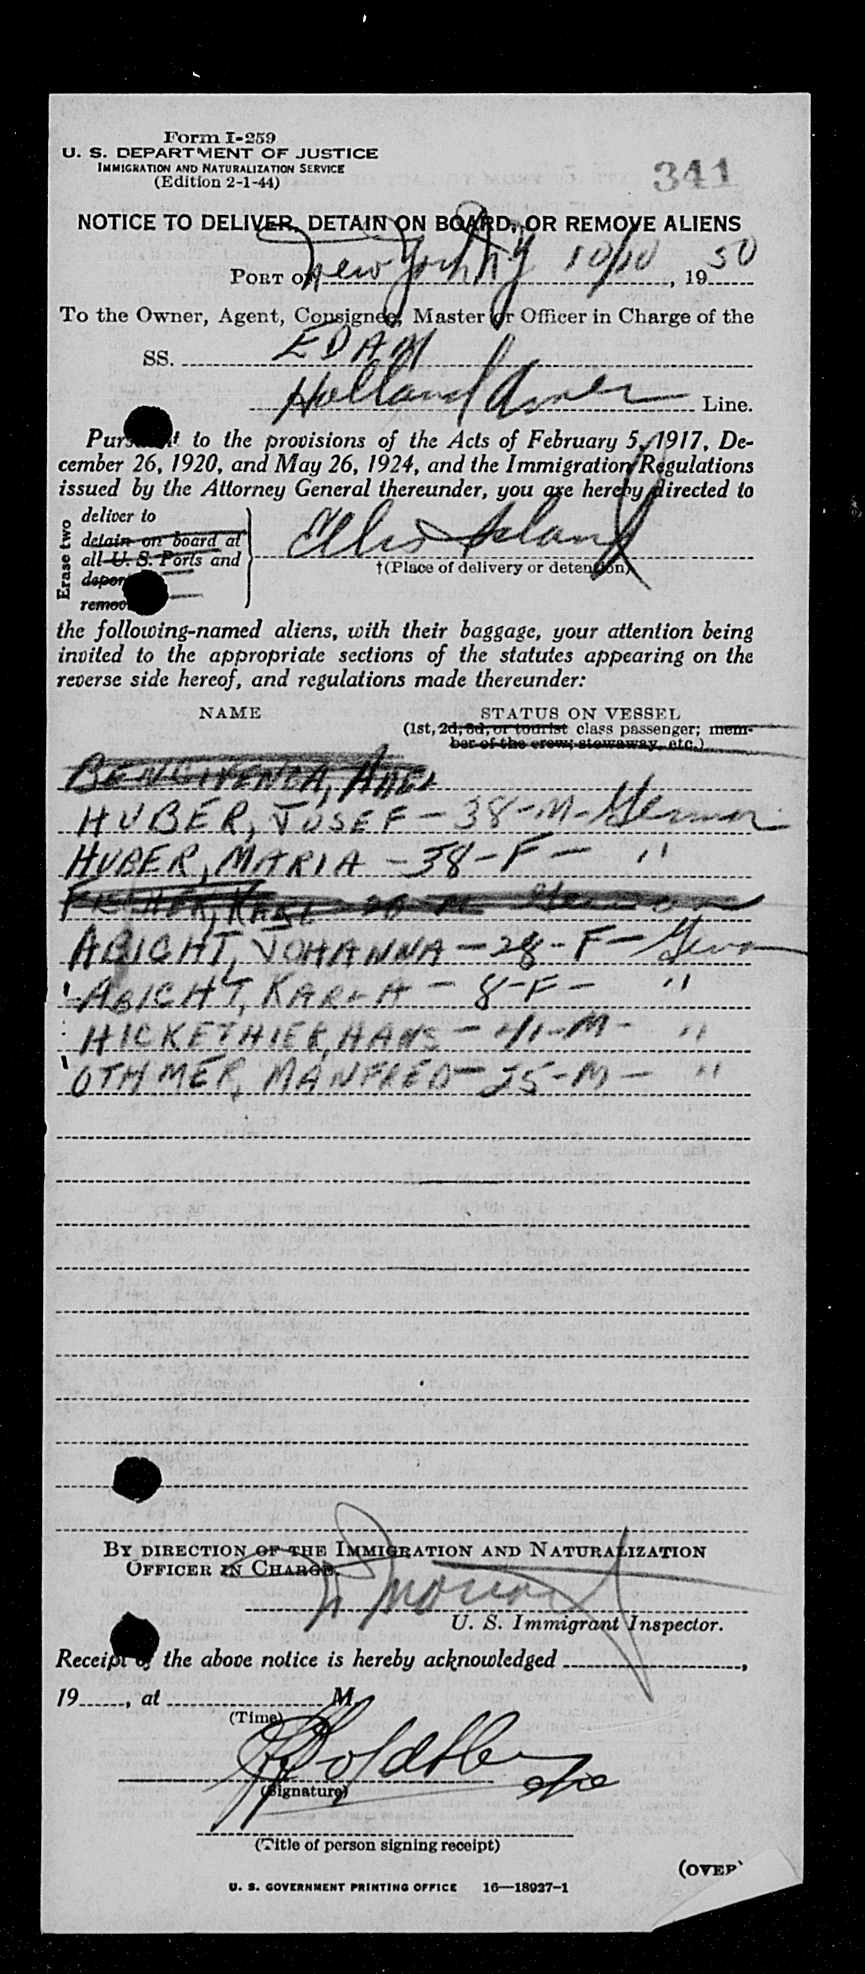 Form I-259
U. S. DEPARTMENT OF JUSTICE
IMMIGRATION AND NATURALIZATION SERVICE
(Edition 2-1-44)
341
NOTICE TO DELIVER, DETAIN ON BOARD, OR REMOVE ALIENS
PORT OF New York NY 10/10, 1950
To the Owner, Agent, Consignee, Master or Officer in Charge of the
SS. EDAM
Holland Amer Line.
Pursuant to the provisions of the Acts of February 5, 1917, De-
cember 26, 1920, and May 26, 1924, and the Immigration Regulations
issued by the Attorney General thereunder, you are hereby directed to
Erase two
deliver to
detain on board at
all U. S. Ports and
depor
remov
Ellis Island
†(Place of delivery or detention)
the following-named aliens, with their baggage, your attention being
invited to the appropriate sections of the statutes appearing on the
reverse side hereof, and regulations made thereunder:
NAME STATUS ON VESSEL
(1st, 2d, 3d, or tourist class passenger; mem-
ber of the crew; stowaway, etc.)
HUBER, JOSEF - 38 - M - German
HUBER, MARIA - 38 - F - "
ABICHT, JOHANNA - 28 - F - Germ
ABICHT, KARLA - 8 - F - "
HICKETHIER, HANS - 41 - M - "
OTHMER, MANFRED - 25 - M - "
BY DIRECTION OF THE IMMIGRATION AND NATURALIZATION
OFFICER IN CHARGE.
U. S. Immigrant Inspector.
Receipt of the above notice is hereby acknowledged ,
19 , at M.
(Time)
(Signature)
(Title of person signing receipt)
(OVER)
U. S. GOVERNMENT PRINTING OFFICE 16—18927-1